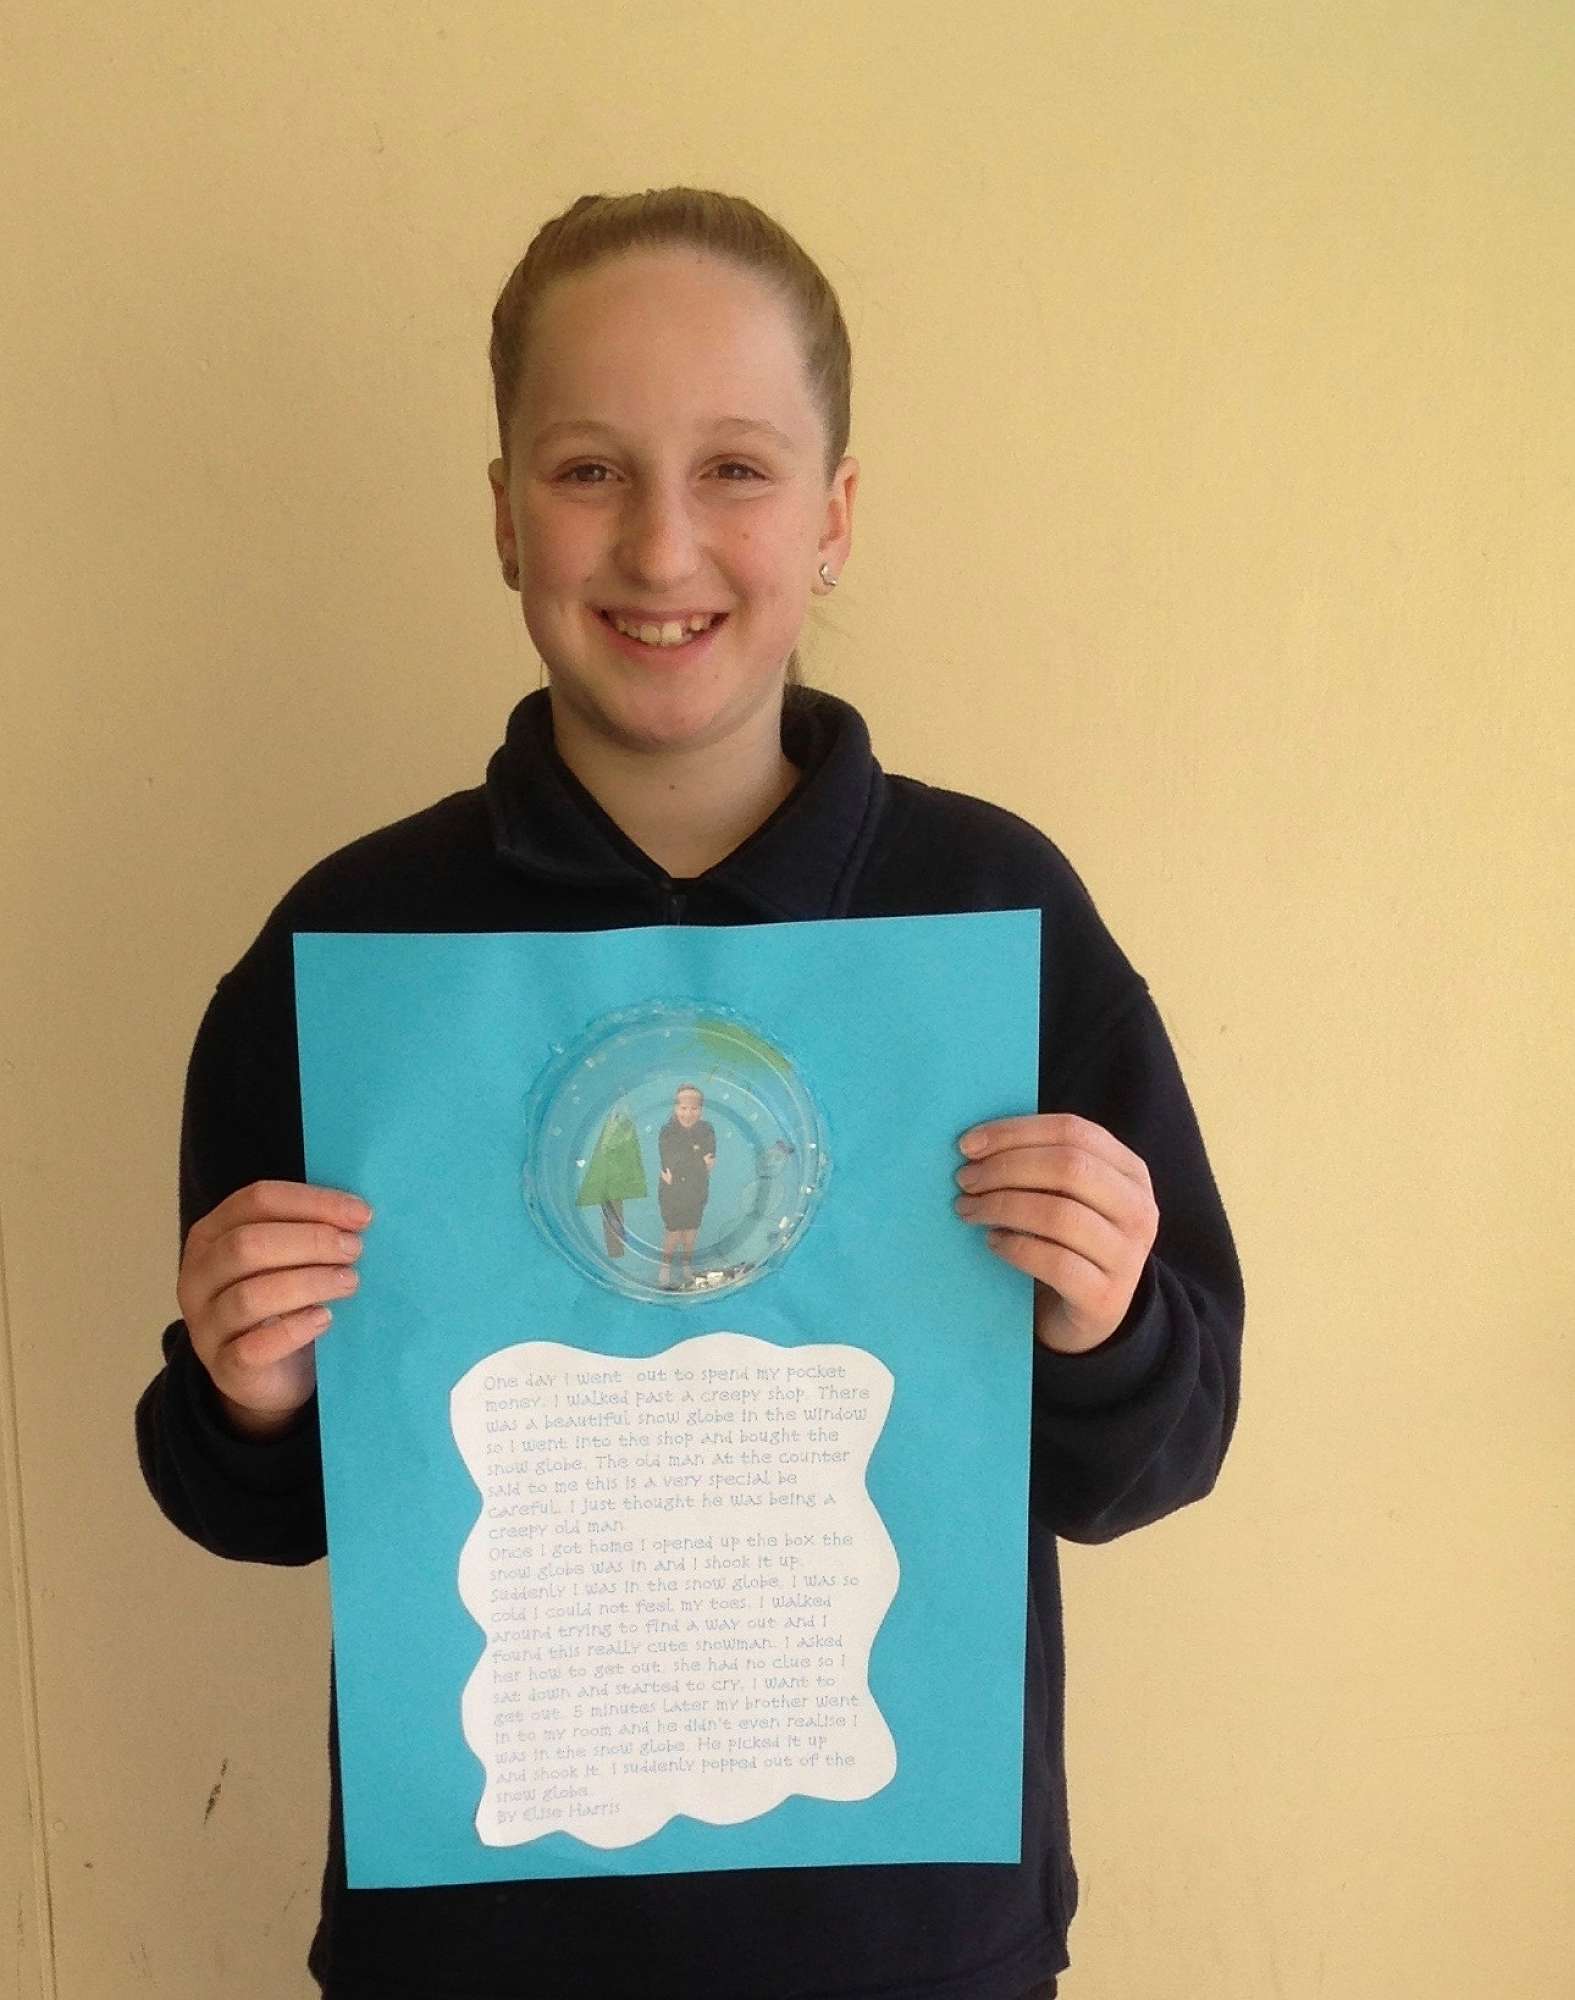 One day I went out to spend my pocket
money. I walked past a creepy shop. There
was a beautiful snow globe in the window
so I went into the shop and bought the
snow globe. The old man at the counter
said to me this is a very special be
careful. I just thought he was being a
creepy old man.
Once I got home I opened up the box the
snow globe was in and I shook it up.
Suddenly I was in the snow globe. I was so
cold I could not feel my toes. I walked
around trying to find a way out and I
found this really cute snowman. I asked
her how to get out. she had no clue so I
sat down and started to cry. I want to
get out. 5 minutes later my brother went
in to my room and he didn't even realise I
was in the snow globe. He picked it up
and shook it. I suddenly popped out of the
snow globe.
By Elise Harris